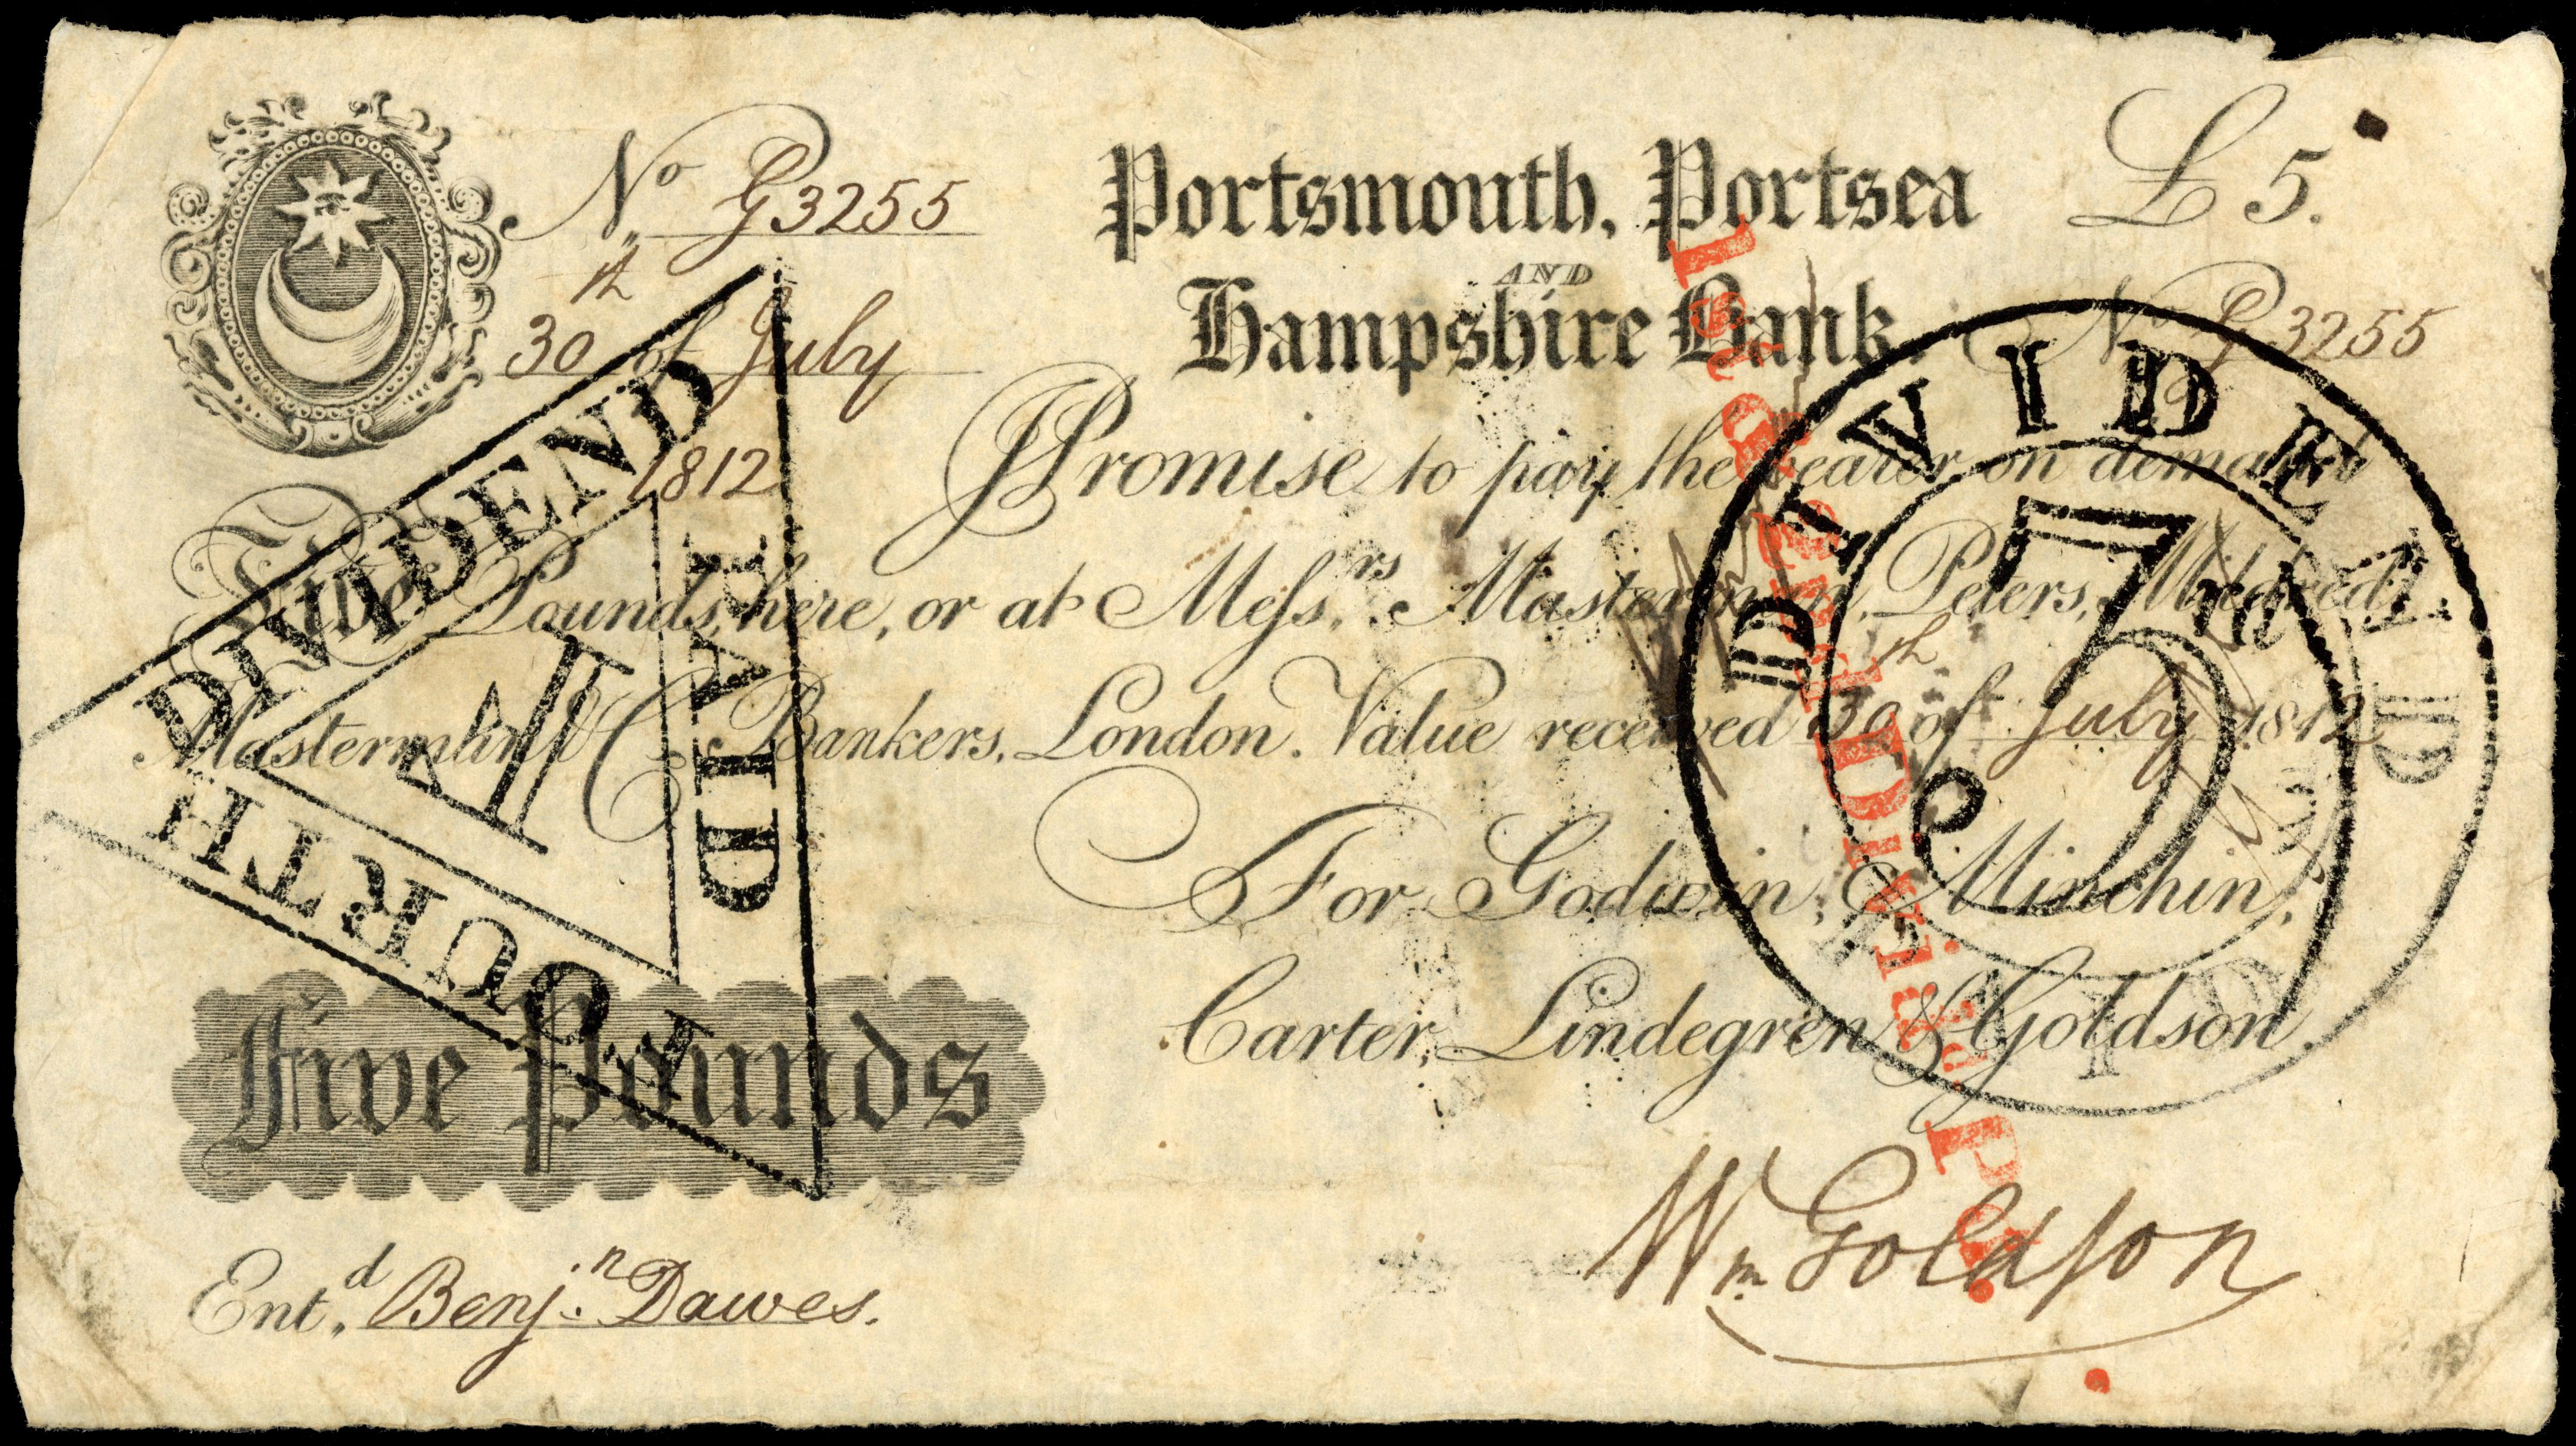 No G3255
Portsmouth, Portsea
£5.
AND
30th of July
Hampshire Bank.
No G3255
1812
I Promise to pay the bearer on demand
Five Pounds, here, or at Messrs. Masterman, Peters, Mildred,
Masterman & Co. Bankers, London. Value received 30th of July 1812
For Godwin, Minchin,
Carter, Lindegren & Goldson.
Five Pounds
Wm Goldson
Entd. Benjn. Dawes.
FOURTH
DIVIDEND
PAID
4
DIVIDEND
PAID
5
1st & 2nd Divid. Pd.